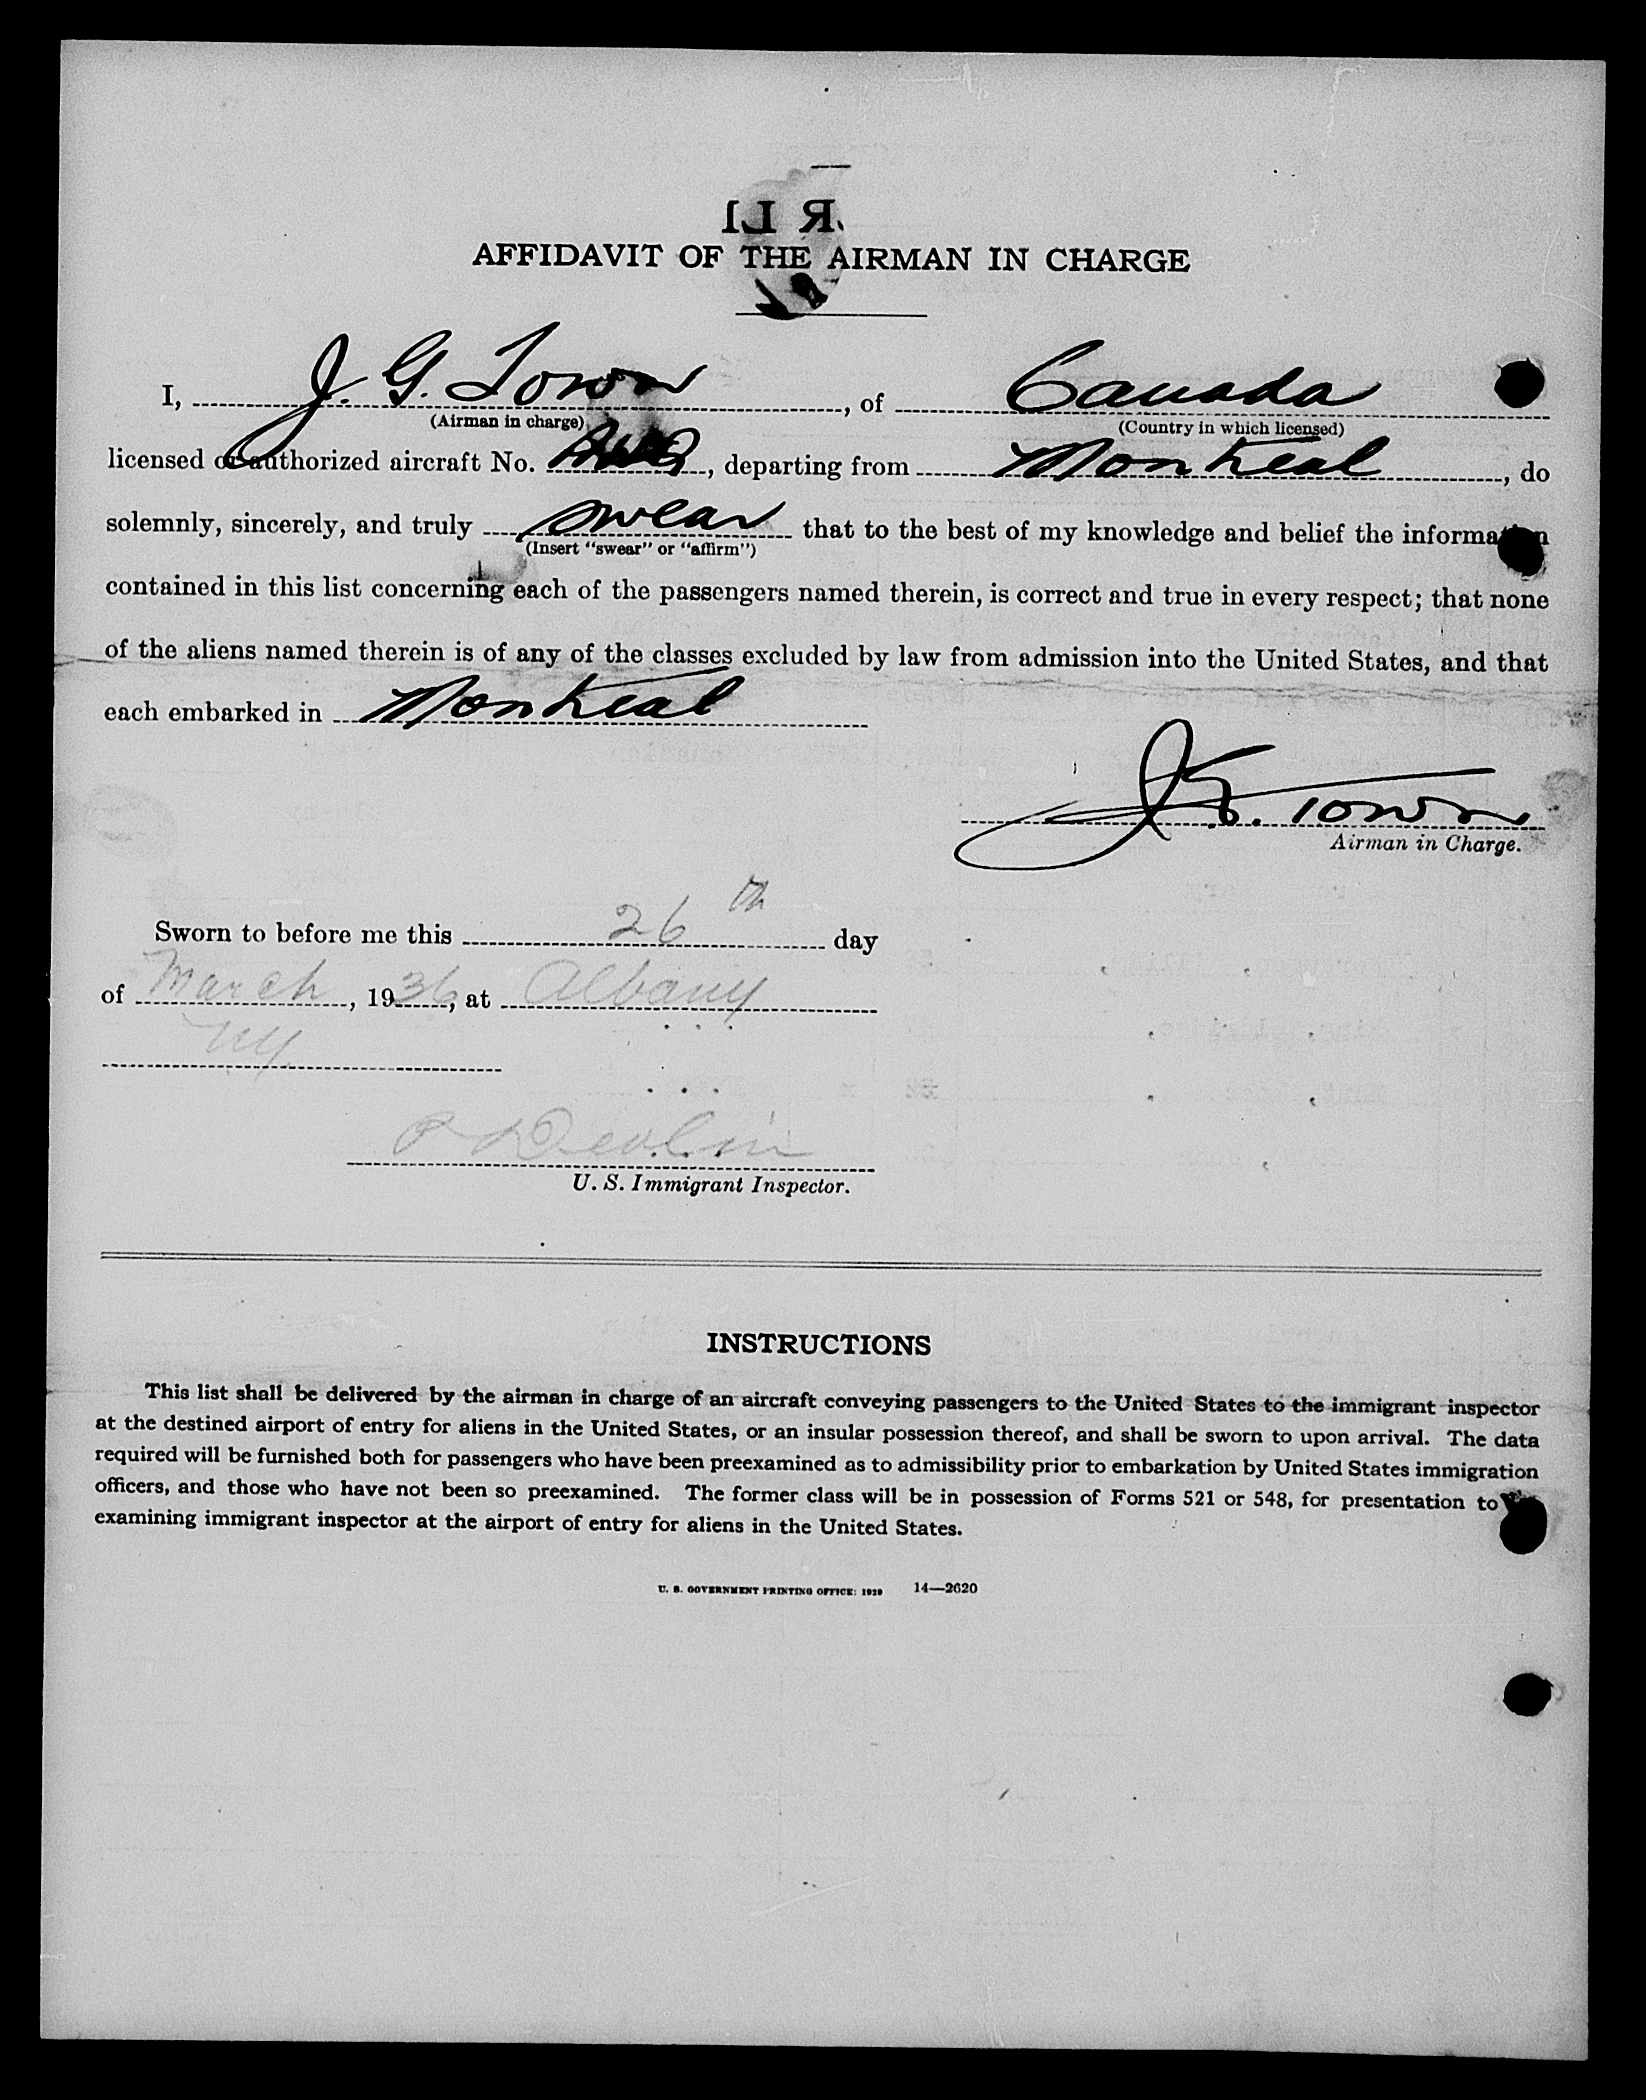 AFFIDAVIT OF THE AIRMAN IN CHARGE
I, J. G. Town, of Canada
(Airman in charge) (Country in which licensed)
licensed or authorized aircraft No. , departing from Montreal, do
solemnly, sincerely, and truly swear that to the best of my knowledge and belief the information
(Insert "swear" or "affirm")
contained in this list concerning each of the passengers named therein, is correct and true in every respect; that none
of the aliens named therein is of any of the classes excluded by law from admission into the United States, and that
each embarked in Montreal
J. G. Town
Airman in Charge.
Sworn to before me this 26th day
of March, 1936, at Albany
NY
Devlin
U. S. Immigrant Inspector.
INSTRUCTIONS
This list shall be delivered by the airman in charge of an aircraft conveying passengers to the United States to the immigrant inspector
at the destined airport of entry for aliens in the United States, or an insular possession thereof, and shall be sworn to upon arrival. The data
required will be furnished both for passengers who have been preexamined as to admissibility prior to embarkation by United States immigration
officers, and those who have not been so preexamined. The former class will be in possession of Forms 521 or 548, for presentation to
examining immigrant inspector at the airport of entry for aliens in the United States.
U. S. GOVERNMENT PRINTING OFFICE: 1929 14—2620